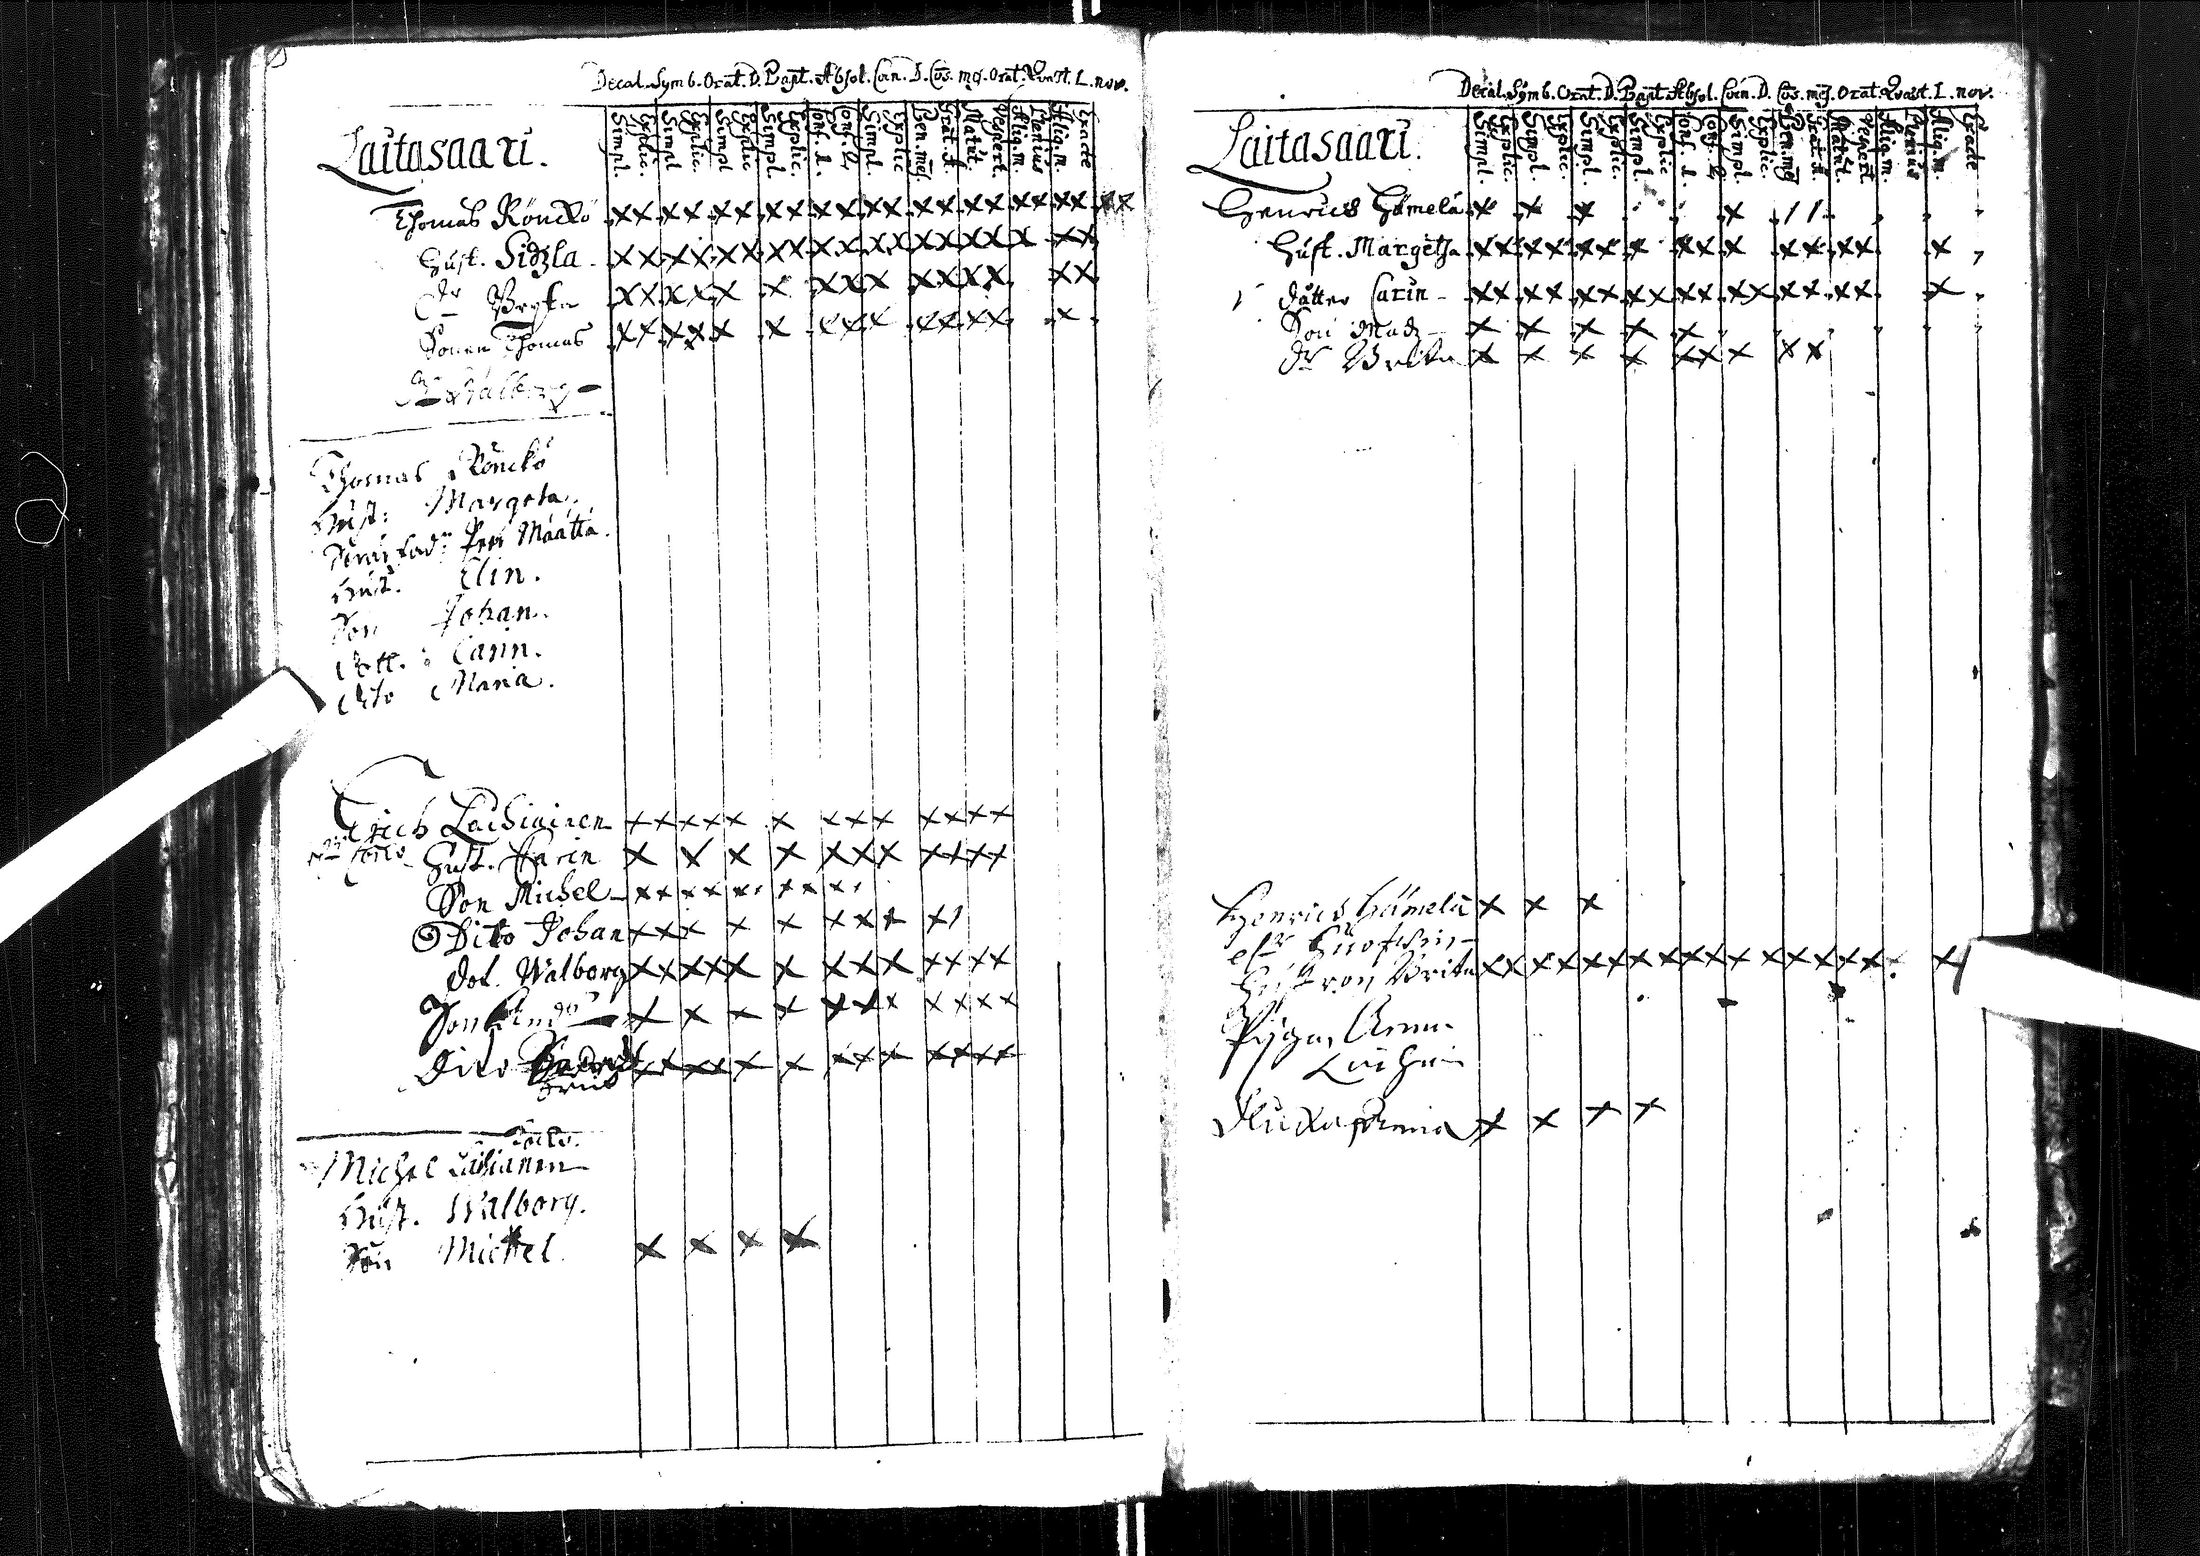 Decal. Symb. Orat. D. Bapt. Absol. Cœn. D. Cos. mẽs. Orat. Quæst. L. nov.
Simpl. Explic. Simpl Explic. Simpl Explic Simpl. Explic. Conf. 1. Conf. 2. Simpl. Explic Ben. mẽs. Grat. A. Matut. Vespert. Aliq. m. Plenius Aliq. m. Exacte
Laitasaari.
Thomas Rönckö
Hust. Sidzla
Dr Bryta
Sonen Thomas
Dr Walborg
Thomas Rönckö
Hust: Margeta.
Per Määttä.
Hust. Elin.
Son Johan.
Dott. Carin.
Dito Maria.
Erich Lachiainen
Hust. Karin
Son Michel
Dito Johan
Dot. Walborg
Son
Dito
Michel Lachianen
Hust. Walborg.
Son Michel.
Decal. Symb. Orat. D. Bapt. Absol. Cœn. D. Cos. mẽs. Orat. Quæst. L. nov.
Simpl. Explic. Simpl. Explic. Simpl. Explic. Simpl. Explic Conf. 1. Conf. 2 Simpl. Explic. Ben. mẽs Grat. A. Matut. Vespert. Aliq. m. Plenius Aliq. m. Exacte
Laitasaari.
Henrich Hämelä
Hust. Margetha
Dotter Carin
Son Madz
Dr Brita
Henrich Hämelä
Hustron Brita
Pigan Anna